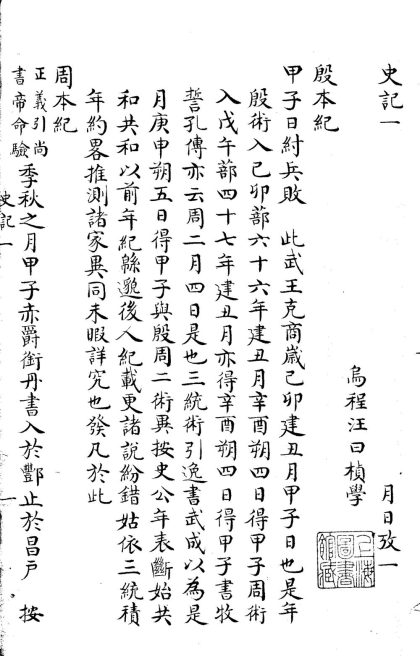 史記一
月日攷一
烏程汪曰楨學
殷本紀
甲子日紂兵敗　此武王克商歲己卯建丑月甲子日也是年
殷術入己卯蔀六十六年建丑月辛酉朔四日得甲子周術
入戊午蔀四十七年建丑月亦得辛酉朔四日得甲子書牧
誓孔傳亦云周二月四日是也三統術引逸書武成以為是
月庚申朔五日得甲子與殷周二術異按史公年表斷始共
和共和以前年紀緜邈後人紀載更諸說紛錯姑依三統積
年約畧推測諸家異同未暇詳究也發凡於此
周本紀
正義引尚
書帝命驗
季秋之月甲子赤爵銜丹書入於酆止於昌戶　按
史記一
一
上海
圖書
館藏